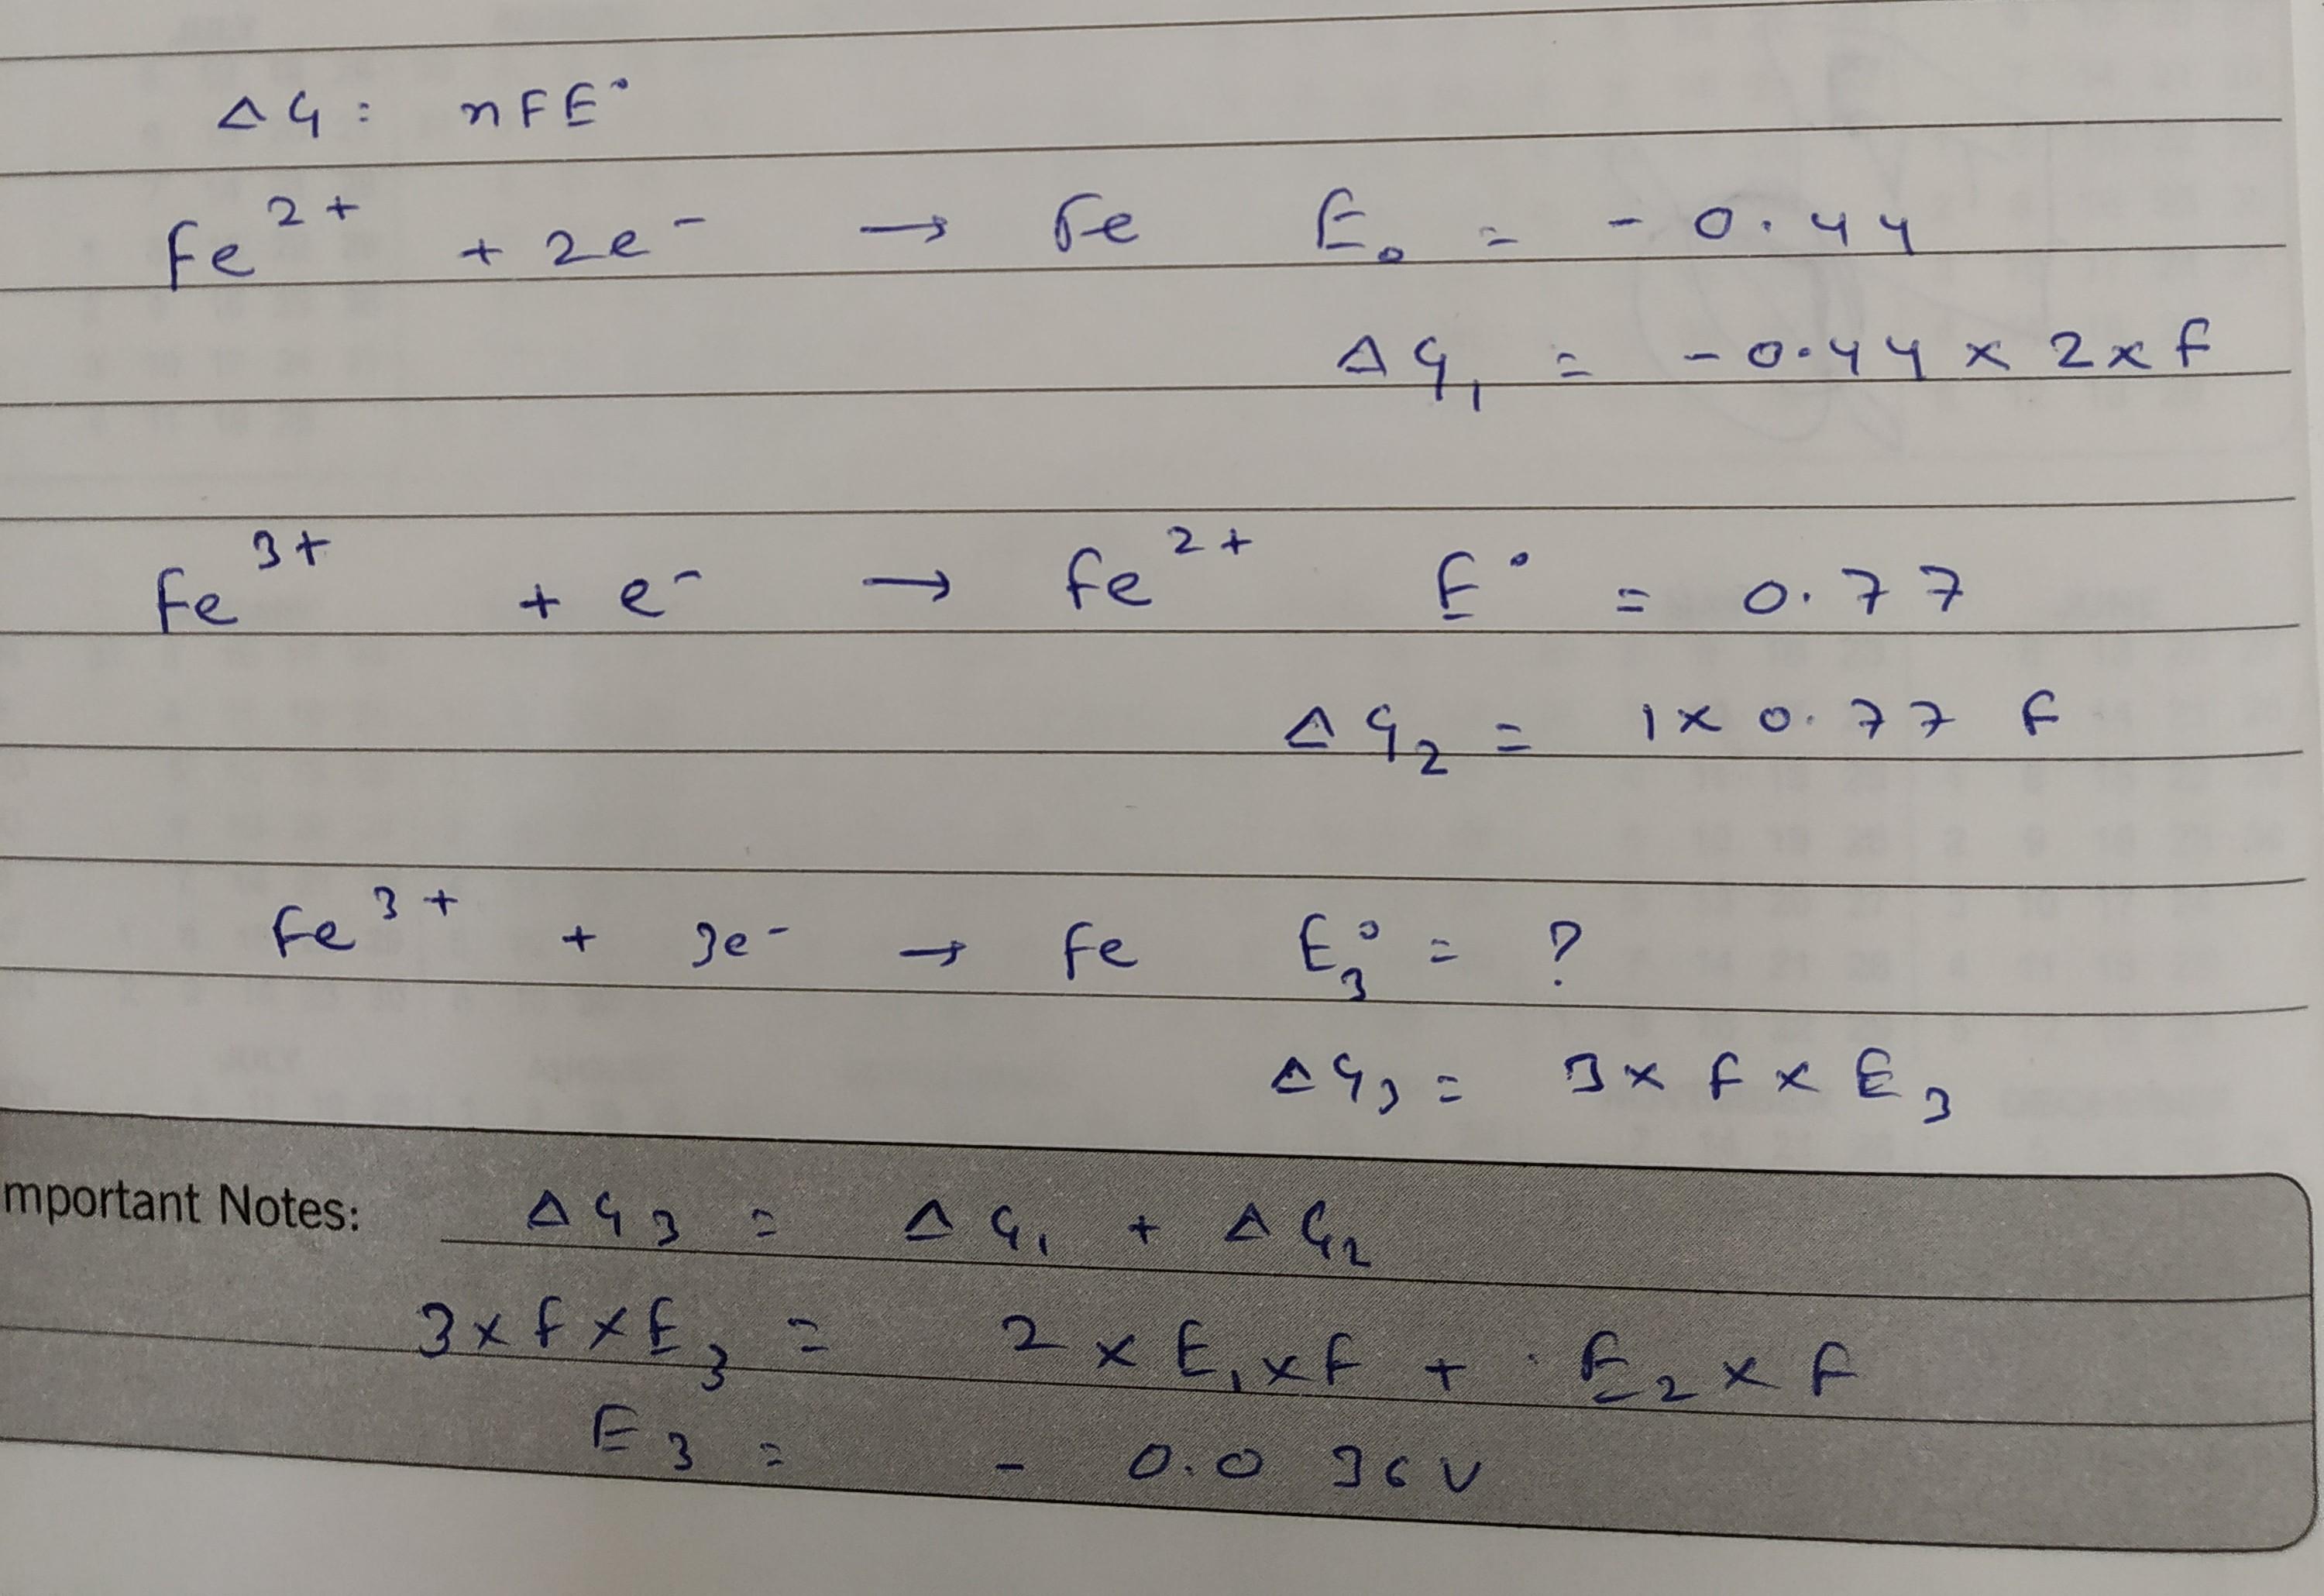 ΔG = nFE°
Fe²⁺ + 2e⁻ → Fe E₀ = - 0.44
ΔG₁ = - 0.44 × 2 × F
Fe³⁺ + e⁻ → Fe²⁺ E° = 0.77
ΔG₂ = 1 × 0.77 F
Fe³⁺ + 3e⁻ → Fe E₃° = ?
ΔG₃ = 3 × F × E₃
mportant Notes: ΔG₃ = ΔG₁ + ΔG₂
3 × F × E₃ = 2 × E₁ × F + E₂ × F
E₃ = - 0.036 V